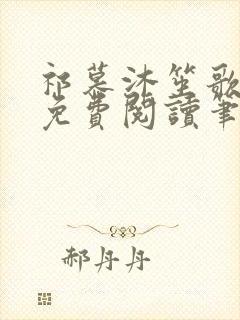 祁慕沐笙歌
免費閱讀筆
郝丹丹